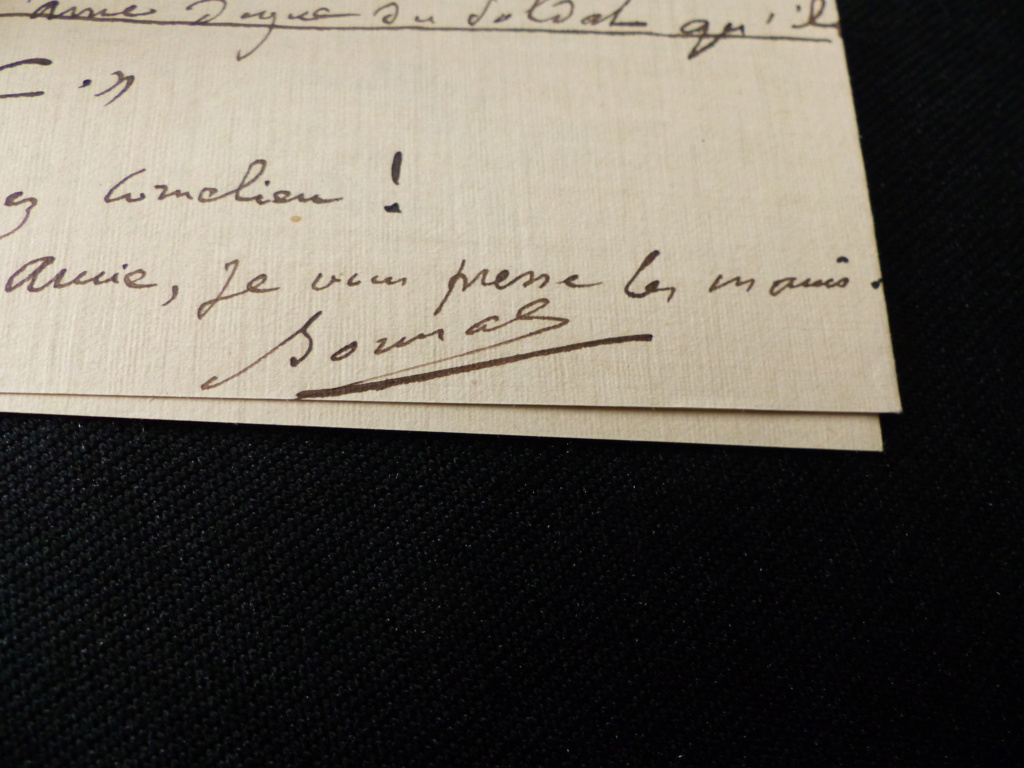 l'âme digne du soldat qu'il
ez cornélien !
amie, je vous presse les mains.
Bonnat